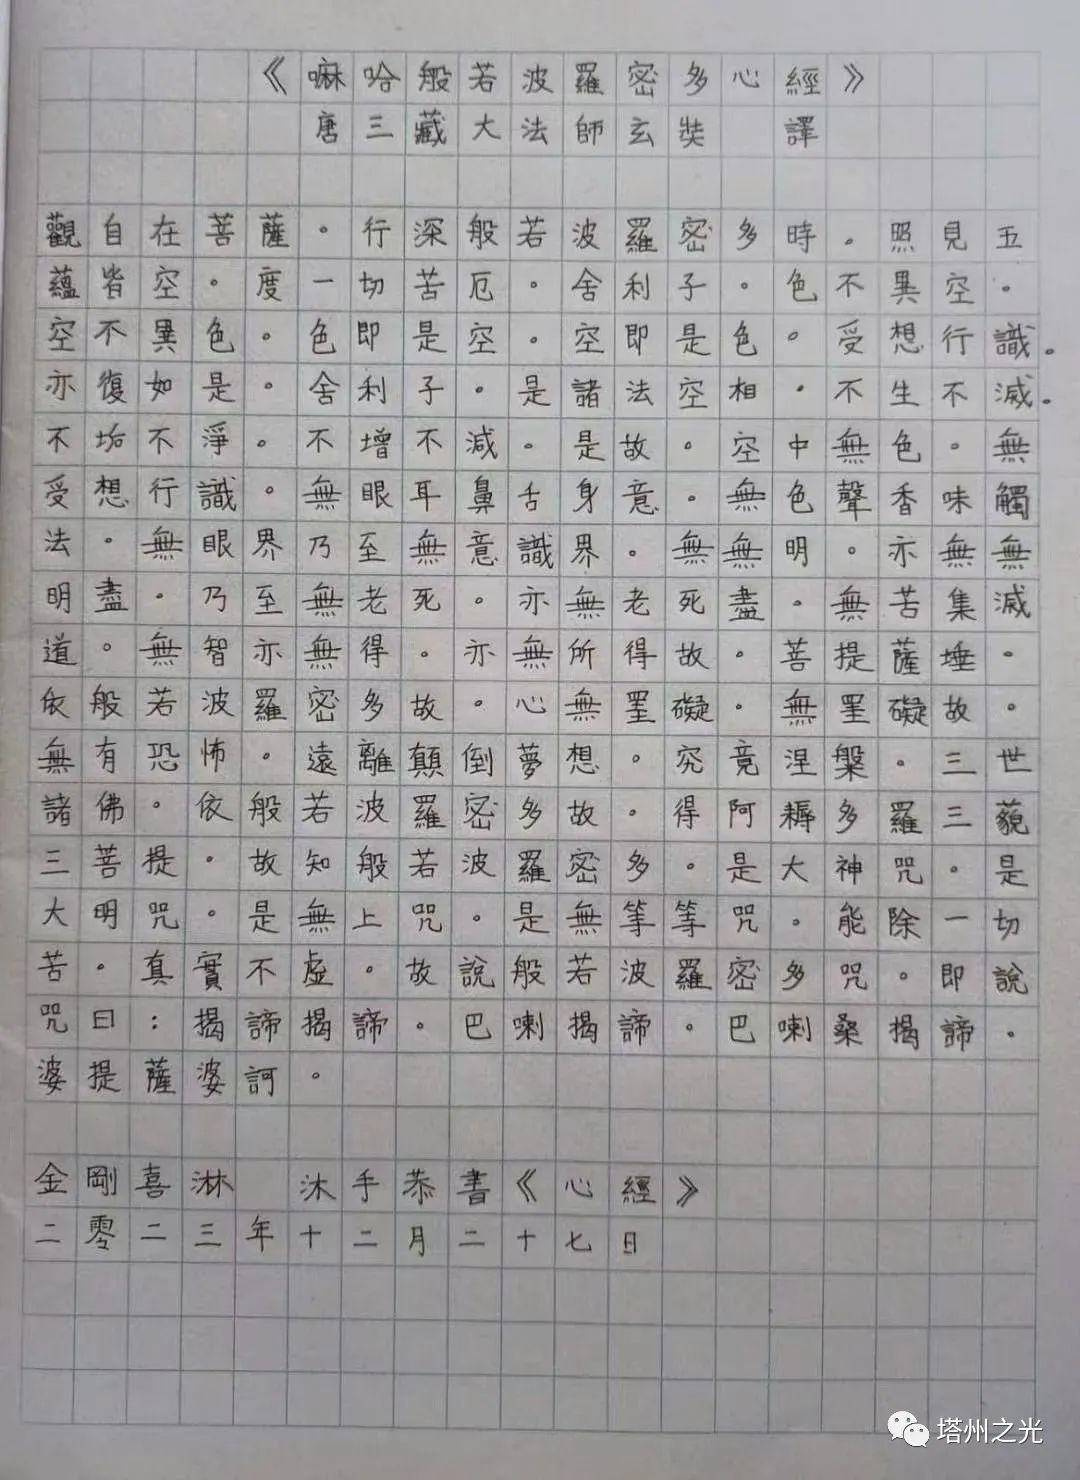 《嘛哈般若波羅密多心經》
唐三藏大法師玄奘 譯
觀自在菩薩。行深般若波羅密多時。照見五
蘊皆空。度一切苦厄。舍利子。色不異空。
空不異色。色即是空。空即是色。受想行識。
亦復如是。舍利子。是諸法空相。不生不滅。
不垢不淨。不增不減。是故。空中無色。無
受想行識。無眼耳鼻舌身意。無色聲香味觸
法。無眼界乃至無意識界。無無明。亦無無
明盡。乃至無老死。亦無老死盡。無苦集滅
道。無智亦無得。亦無所得故。菩提薩埵。
依般若波羅密多故。心無罣礙。無罣礙故。
無有恐怖。遠離顛倒夢想。究竟涅槃。三世
諸佛。依般若波羅密多故。得阿耨多羅三藐
三菩提。故知般若波羅密多。是大神咒。是
大明咒。是無上咒。是無等等咒。能除一切
苦。真實不虛。故說般若波羅密多咒。即說
咒曰：揭諦揭諦。巴喇揭諦。巴喇桑揭諦。
婆提薩婆訶。
金剛喜淋 沐手恭書《心經》
二零二三年十二月二十七日
塔州之光